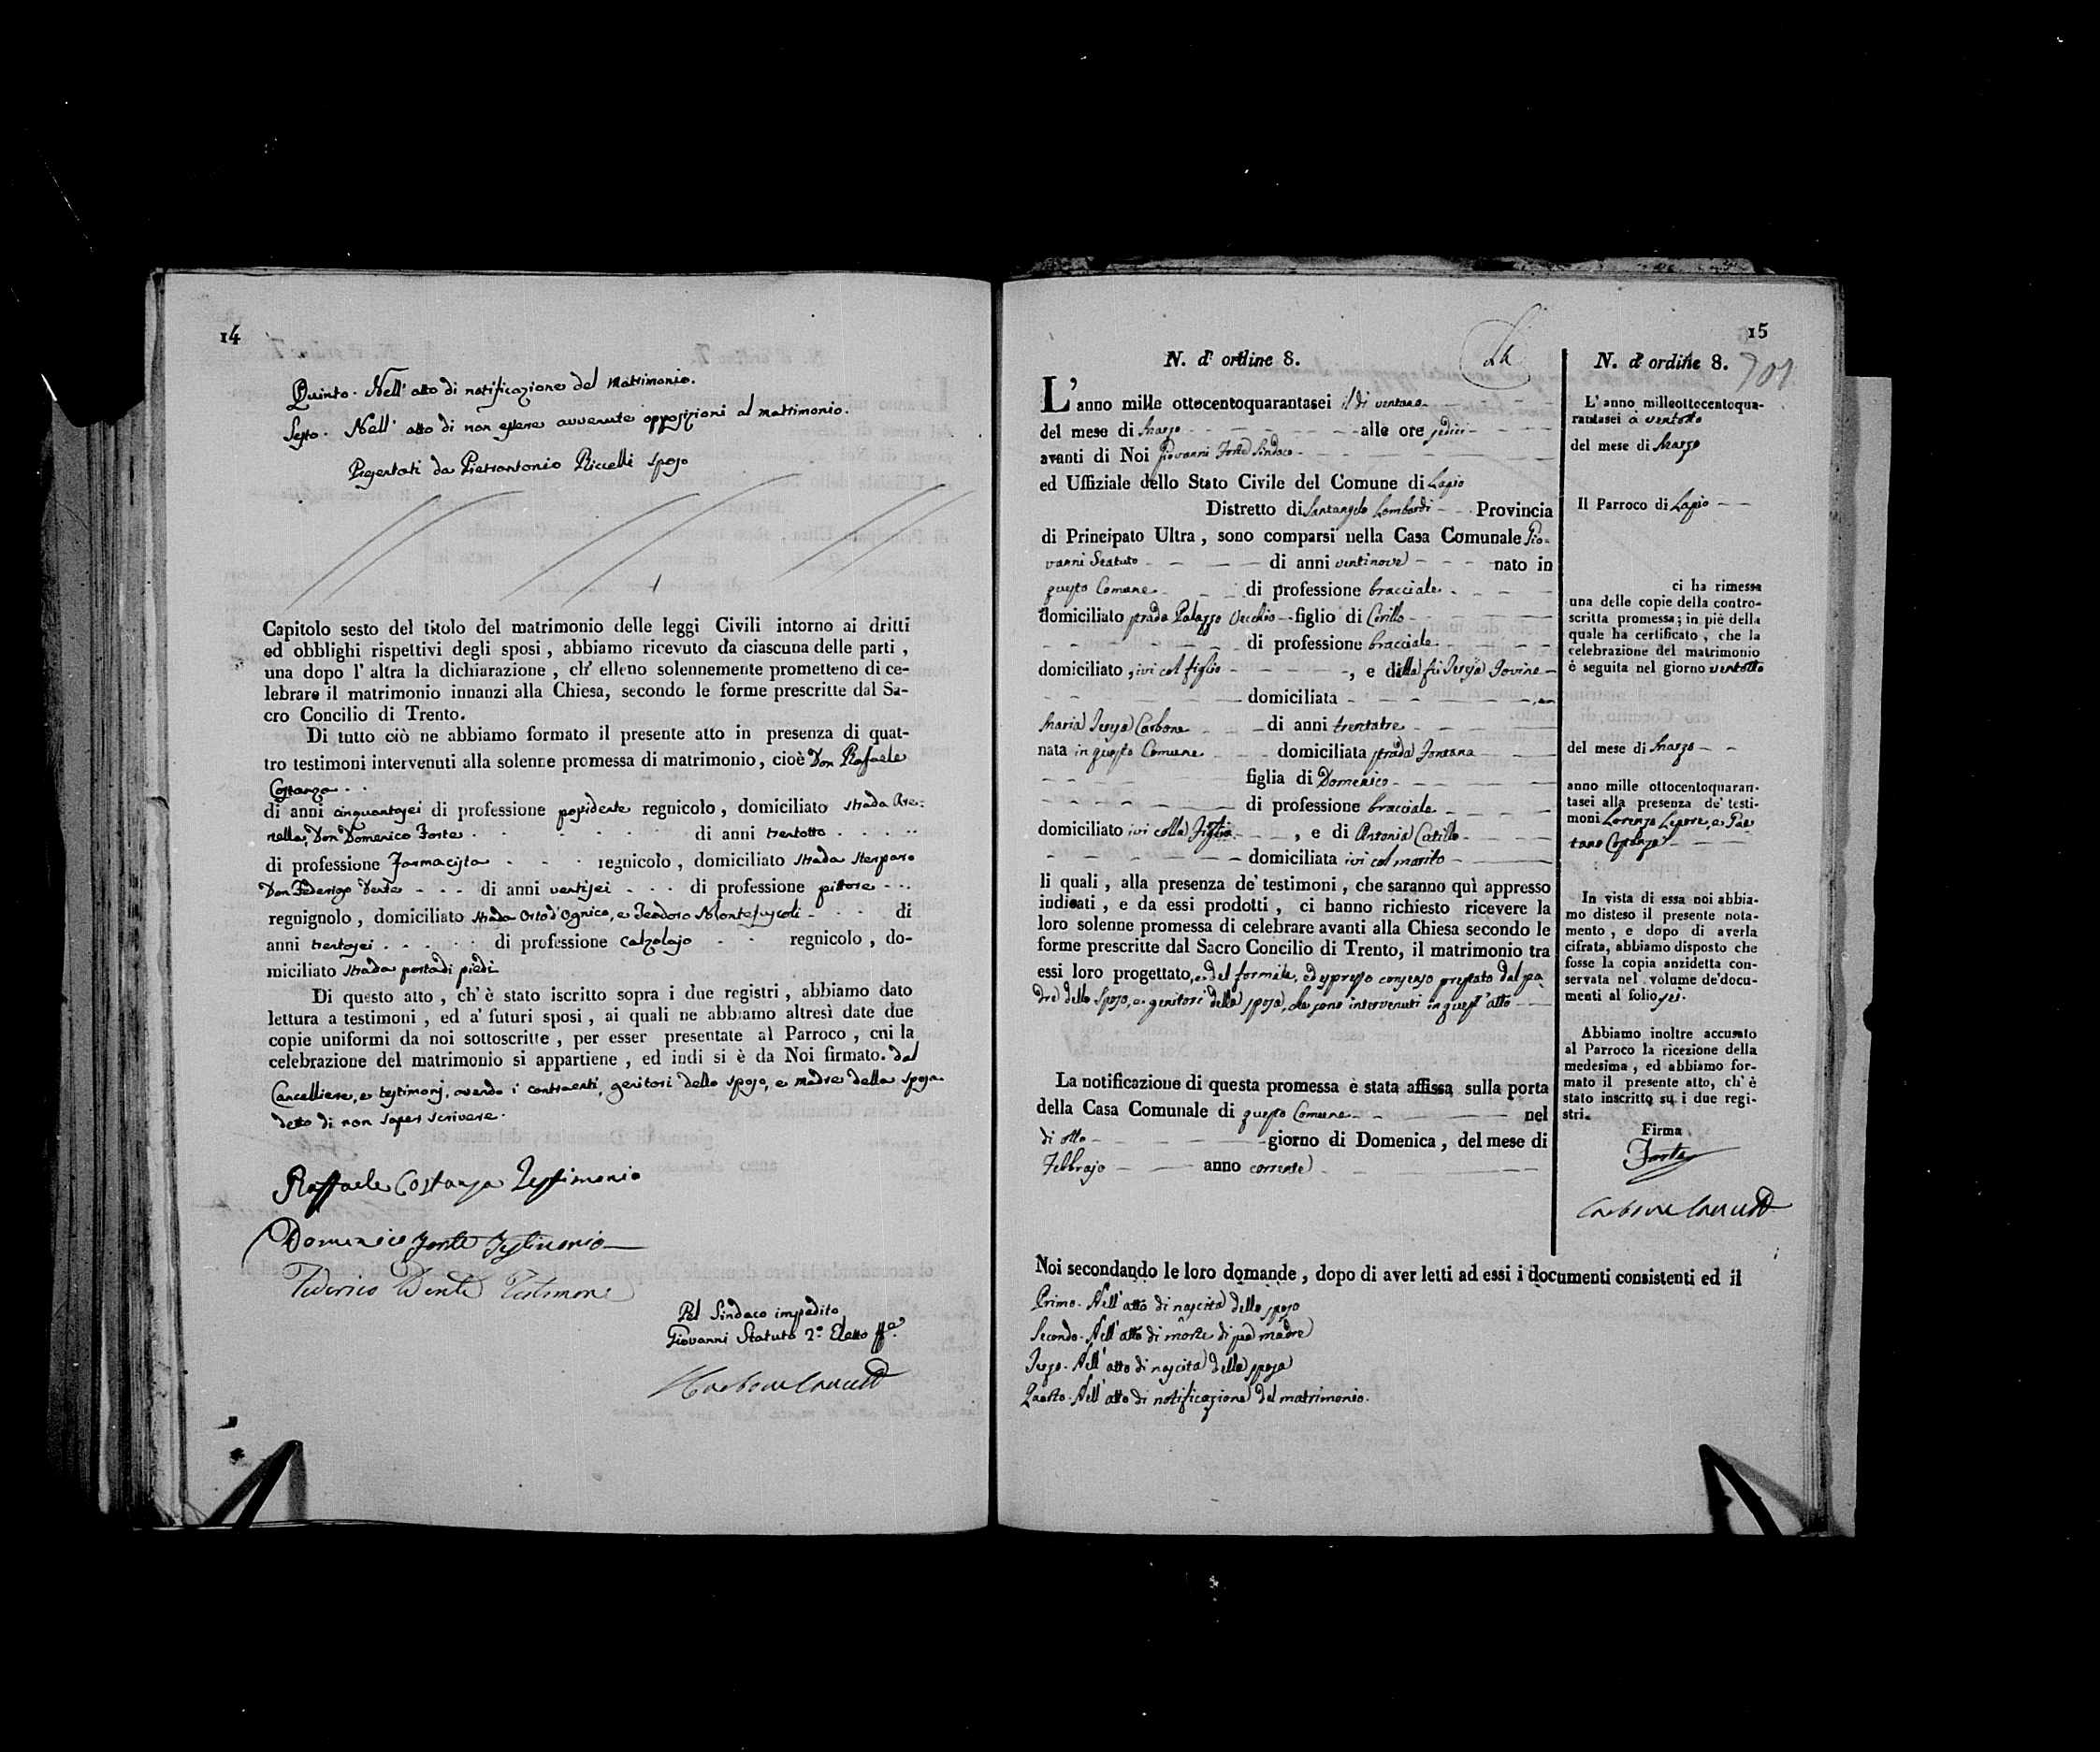 14
Quinto. Nell' atto di notificazione del Matrimonio.
Sesto. Nell' atto di non essere avvenute opposizioni al matrimonio.
Presentati da Pietrantonio Riccelli sposo
Capitolo sesto del titolo del matrimonio delle leggi Civili intorno ai dritti
ed obblighi rispettivi degli sposi , abbiamo ricevuto da ciascuna delle parti ,
una dopo l' altra la dichiarazione , ch' elleno solennemente promettono di ce-
lebrare il matrimonio innanzi alla Chiesa, secondo le forme prescritte dal Sa-
cro Concilio di Trento.
Di tutto ciò ne abbiamo formato il presente atto in presenza di quat-
tro testimoni intervenuti alla solenne promessa di matrimonio, cioè Don Rafaele
Costanza
di anni cinquantasei di professione possidente regnicolo, domiciliato strada Are-
nella, Don Domenico Forte di anni trentotto
di professione Farmacista regnicolo , domiciliato strada
Don Federigo Dente di anni ventisei di professione pittore
regnignolo , domiciliato strada Orto d'Ognico, e Teodoro Montefuscoli di
anni trentasei di professione Calzolajo regnicolo , do-
miciliato strada porta di piedi
Di questo atto , ch' è stato iscritto sopra i due registri , abbiamo dato
lettura a testimoni , ed a' futuri sposi , ai quali ne abbiamo altresì date due
copie uniformi da noi sottoscritte , per esser presentate al Parroco , cni la
celebrazione del matrimonio si appartiene , ed indi si è da Noi firmato. dal
Cancelliere, e testimonj, avendo i contraenti, genitori dello sposo, e madre della sposa
detto di non saper scrivere.
Raffaele Costanza Testimonio
Domenico Forte Testimonio
Federico Dente Testimone
Pel Sindaco impedito
Giovanni Statuto 2º Eletto
Carbone
15
N. d' ordine 8.
L' anno mille ottocentoquarantasei il dì ventuno
del mese di Marzo alle ore sedici
avanti di Noi Giovanni Forte Sindaco
ed Uffiziale dello Stato Civile del Comune di Lapio
Distretto di Santangelo Lombardi Provincia
di Principato Ultra , sono comparsi nella Casa Comunale Gio-
vanni Statuto di anni ventinove nato in
questo Comune di professione bracciale
domiciliato strada Palazzo Vecchio figlio di Cirillo
di professione bracciale
domiciliato , ivi col figlio , e della fu Teresa Iovine
domiciliata
Maria Teresa Carbone di anni trentatre
nata in questo Comune domiciliata strada Fontana
figlia di Domenico
di professione bracciale
domiciliato ivi colla Figlia , e di Antonia Catillo
domiciliata ivi col marito
li quali , alla presenza de' testimoni , che saranno quì appresso
indicati , e da essi prodotti , ci hanno richiesto ricevere la
loro solenne promessa di celebrare avanti alla Chiesa secondo le
forme prescritte dal Sacro Concilio di Trento, il matrimonio tra
essi loro progettato, e del formale, ed espresso consenso prestato dal pa-
dre dello sposo, e genitori della sposa, che sono intervenuti in quest' atto
La notificazione di questa promessa è stata affissa sulla porta
della Casa Comunale di questo Comune nel
dì otto giorno di Domenica , del mese di
Febbrajo anno corrente
Noi secondando le loro domande , dopo di aver letti ad essi i documenti consistenti ed il
Primo. Nell' atto di nascita dello sposo
Secondo. Nell' atto di morte di sua madre
Terzo. Nell' atto di nascita della sposa
Quarto. Nell' atto di notificazione del matrimonio.
N. d' ordine 8.
701
L' anno milleottocentoqua-
rantasei a ventotto
del mese di Marzo
Il Parroco di Lapio
ci ha rimessa
una delle copie della contro-
scritta promessa; in piè della
quale ha certificato , che la
celebrazione del matrimonio
è seguita nel giorno ventotto
del mese di Marzo
anno mille ottocentoquaran-
tasei alla presenza de' testi-
moni Lorenzo Lepore, e Gae-
tano Costanza
In vista di essa noi abbia-
mo disteso il presente nota-
mento , e dopo di averla
cifrata, abbiamo disposto che
fosse la copia anzidetta con-
servata nel volume de'docu-
menti al folio sei.
Abbiamo inoltre accusato
al Parroco la ricezione della
medesima , ed abbiamo for-
mato il presente atto, ch' è
stato inscritto su i due regi-
stri.
Firma
Forte
Carbone